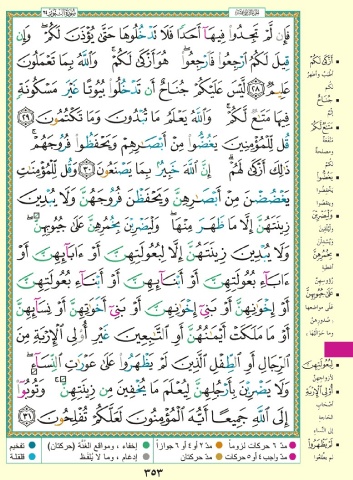 سُورَةُ النُّورِ ٢٤
فَإِن لَّمْ تَجِدُوا۟ فِيهَآ أَحَدًا فَلَا تَدْخُلُوهَا حَتَّىٰ يُؤْذَنَ لَكُمْ ۖ وَإِن
قِيلَ لَكُمُ ٱرْجِعُوا۟ فَٱرْجِعُوا۟ ۖ هُوَ أَزْكَىٰ لَكُمْ ۚ وَٱللَّهُ بِمَا تَعْمَلُونَ
عَلِيمٌ ٢٨ لَّيْسَ عَلَيْكُمْ جُنَاحٌ أَن تَدْخُلُوا۟ بُيُوتًا غَيْرَ مَسْكُونَةٍ
فِيهَا مَتَـٰعٌ لَّكُمْ ۚ وَٱللَّهُ يَعْلَمُ مَا تُبْدُونَ وَمَا تَكْتُمُونَ ٢٩
قُل لِّلْمُؤْمِنِينَ يَغُضُّوا۟ مِنْ أَبْصَـٰرِهِمْ وَيَحْفَظُوا۟ فُرُوجَهُمْ ۚ
ذَٰلِكَ أَزْكَىٰ لَهُمْ ۗ إِنَّ ٱللَّهَ خَبِيرٌۢ بِمَا يَصْنَعُونَ ٣٠ وَقُل لِّلْمُؤْمِنَـٰتِ
يَغْضُضْنَ مِنْ أَبْصَـٰرِهِنَّ وَيَحْفَظْنَ فُرُوجَهُنَّ وَلَا يُبْدِينَ
زِينَتَهُنَّ إِلَّا مَا ظَهَرَ مِنْهَا ۖ وَلْيَضْرِبْنَ بِخُمُرِهِنَّ عَلَىٰ جُيُوبِهِنَّ ۖ
وَلَا يُبْدِينَ زِينَتَهُنَّ إِلَّا لِبُعُولَتِهِنَّ أَوْ ءَابَآئِهِنَّ أَوْ
ءَابَآءِ بُعُولَتِهِنَّ أَوْ أَبْنَآئِهِنَّ أَوْ أَبْنَآءِ بُعُولَتِهِنَّ
أَوْ إِخْوَٰنِهِنَّ أَوْ بَنِىٓ إِخْوَٰنِهِنَّ أَوْ بَنِىٓ أَخَوَٰتِهِنَّ أَوْ نِسَآئِهِنَّ
أَوْ مَا مَلَكَتْ أَيْمَـٰنُهُنَّ أَوِ ٱلتَّـٰبِعِينَ غَيْرِ أُو۟لِى ٱلْإِرْبَةِ مِنَ
ٱلرِّجَالِ أَوِ ٱلطِّفْلِ ٱلَّذِينَ لَمْ يَظْهَرُوا۟ عَلَىٰ عَوْرَٰتِ ٱلنِّسَآءِ ۖ
وَلَا يَضْرِبْنَ بِأَرْجُلِهِنَّ لِيُعْلَمَ مَا يُخْفِينَ مِن زِينَتِهِنَّ ۚ وَتُوبُوٓا۟
إِلَى ٱللَّهِ جَمِيعًا أَيُّهَ ٱلْمُؤْمِنُونَ لَعَلَّكُمْ تُفْلِحُونَ ٣١
أَزْكَىٰ لَكُمْ
أطيب وأطهر
لكم
جُنَاحٌ
إثم
مَتَـٰعٌ لَّكُمْ
منفعة
ومصلحة
لكم
يَغُضُّوا۟
يخفضوا
وينقصوا
وَلْيَضْرِبْنَ
وليلقين
ويسدلن
بِخُمُرِهِنَّ
أغطية
رؤوسهن
عَلَىٰ جُيُوبِهِنَّ
على مواضعها
صدورهن
وما حواليها
لِبُعُولَتِهِنَّ
لأزواجهن
أُو۟لِى ٱلْإِرْبَةِ
أصحاب
الحاجة
إلى النساء
لَمْ يَظْهَرُوا۟
لم يبلغوا
مدّ ٦ حركات لزوماً مدّ ٢ أو ٤ أو ٦ جوازاً إخفاء، ومواقع الغُنَّة (حركتان) تفخيم
مدّ واجب ٤ أو ٥ حركات مدّ حركتان إدغام، وما لا يُلفَظ قلقلة
٣٥٣